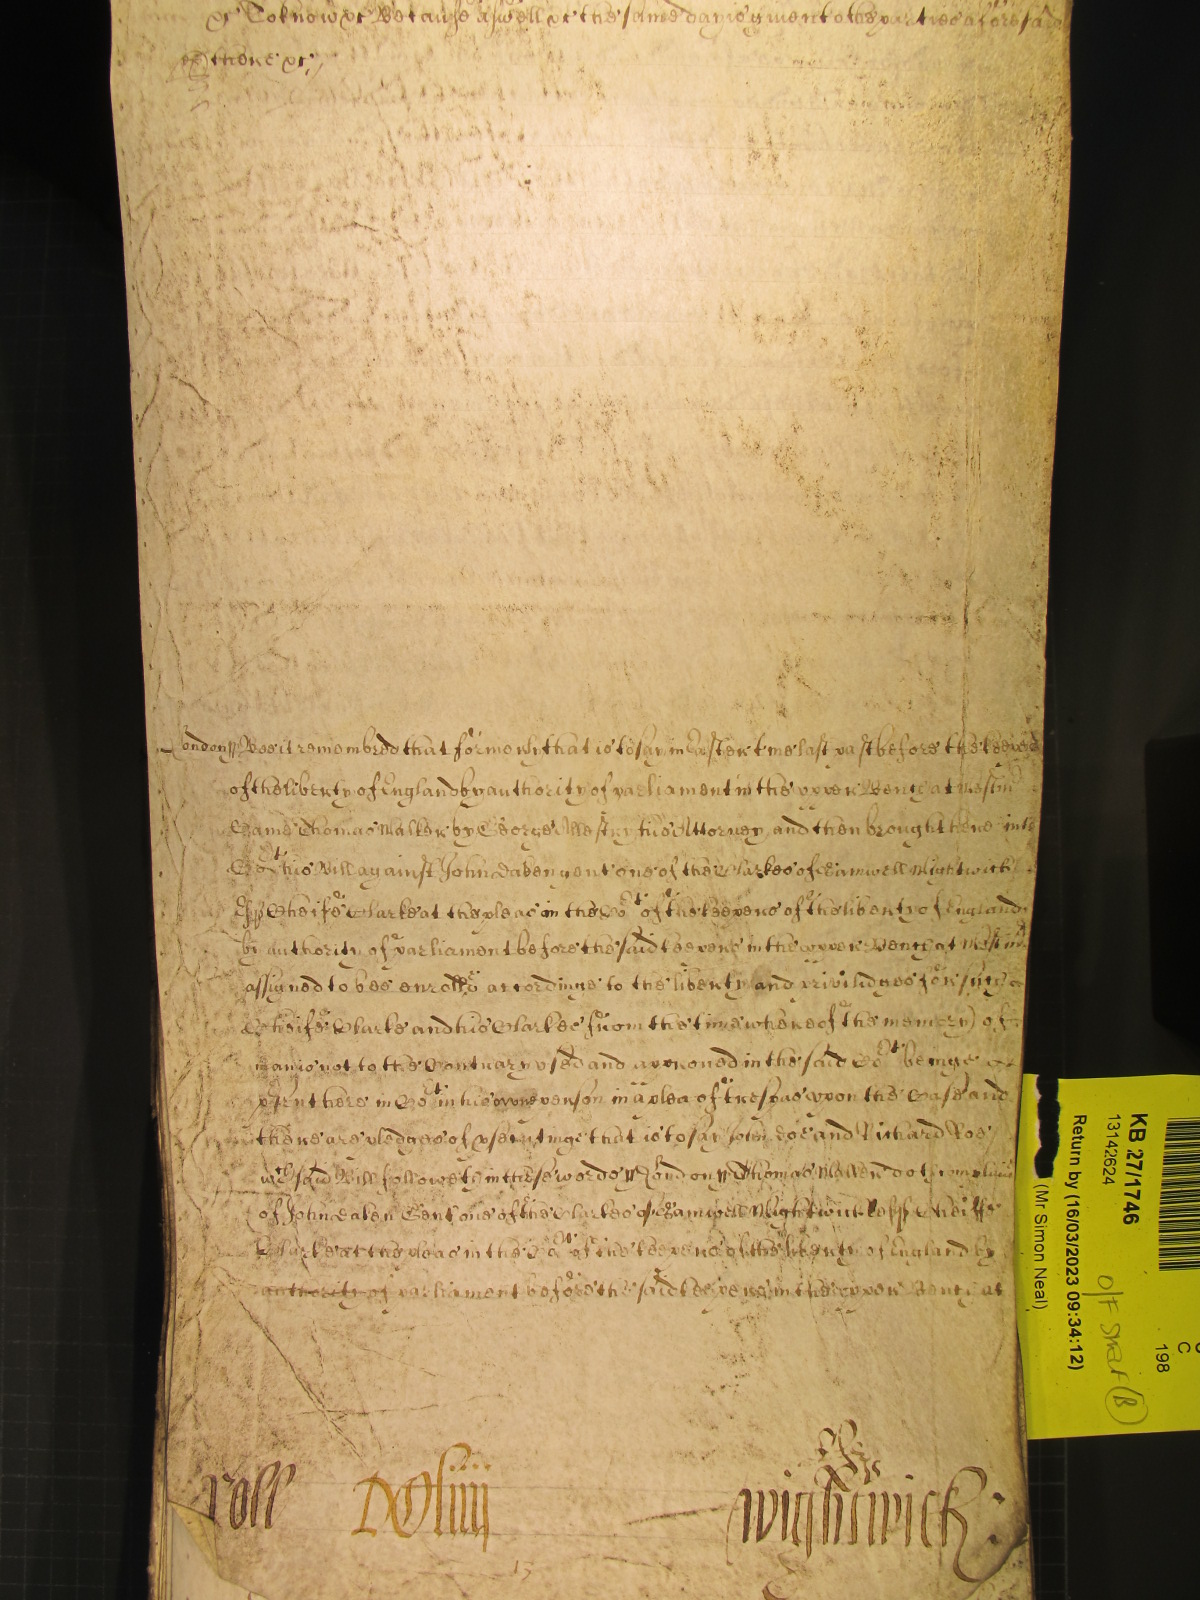 &c To know &c Because aswell &c the same day is given to the parties aforesaid
&c
London Bee it remembred that formerly that is to say in Easter t'me last past before the keepers
of the liberty of England by authority of parliament in the upper Bench at Westm
Came Thomas Walker by George his Attorney and then brought here into
Cot his Bill against John Daken gent one of the Clarkes of Samwell Wightwick
Esq Cheife Clarke at the pleas in the Cot of the keepers of the liberty of England
by authority of parliament before the said keepers in the upper Bench at Westm
assigned to bee enrolled accordinge to the liberty and priviledges for such a
Cheife Clarke and his Clarkes from the time whereof the memory of
man is not to the Contrary used and approued in the said Cot beinge
p'sent here in Cot in his owne person in a plea of trespas upon the Case and
there are pledges of p'secutinge that is to say John Doe and Richard Roe
wch said Bill followeth in these words London Thomas Walker doth complaine
of John Daken Gent one of the Clarkes of Samwell Wightwick Esq Cheiffe
Clarke at the pleas in the Cot of the keepers of the liberty of England by
authority of parliament before the said keepers in the upper Bench at
roll DCliiij
Wightwick:
15
KB 27/1746
13142624
Return by (16/03/2023 09:34:12)
(Mr Simon Neal)
O/F
(B)
C
198